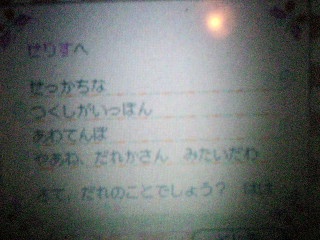 せりすへ
せっかちな
つくしがいっぽん
あわてんぼ
やあね、だれかさん　みたいだわ
さて、だれのことでしょう？　はは